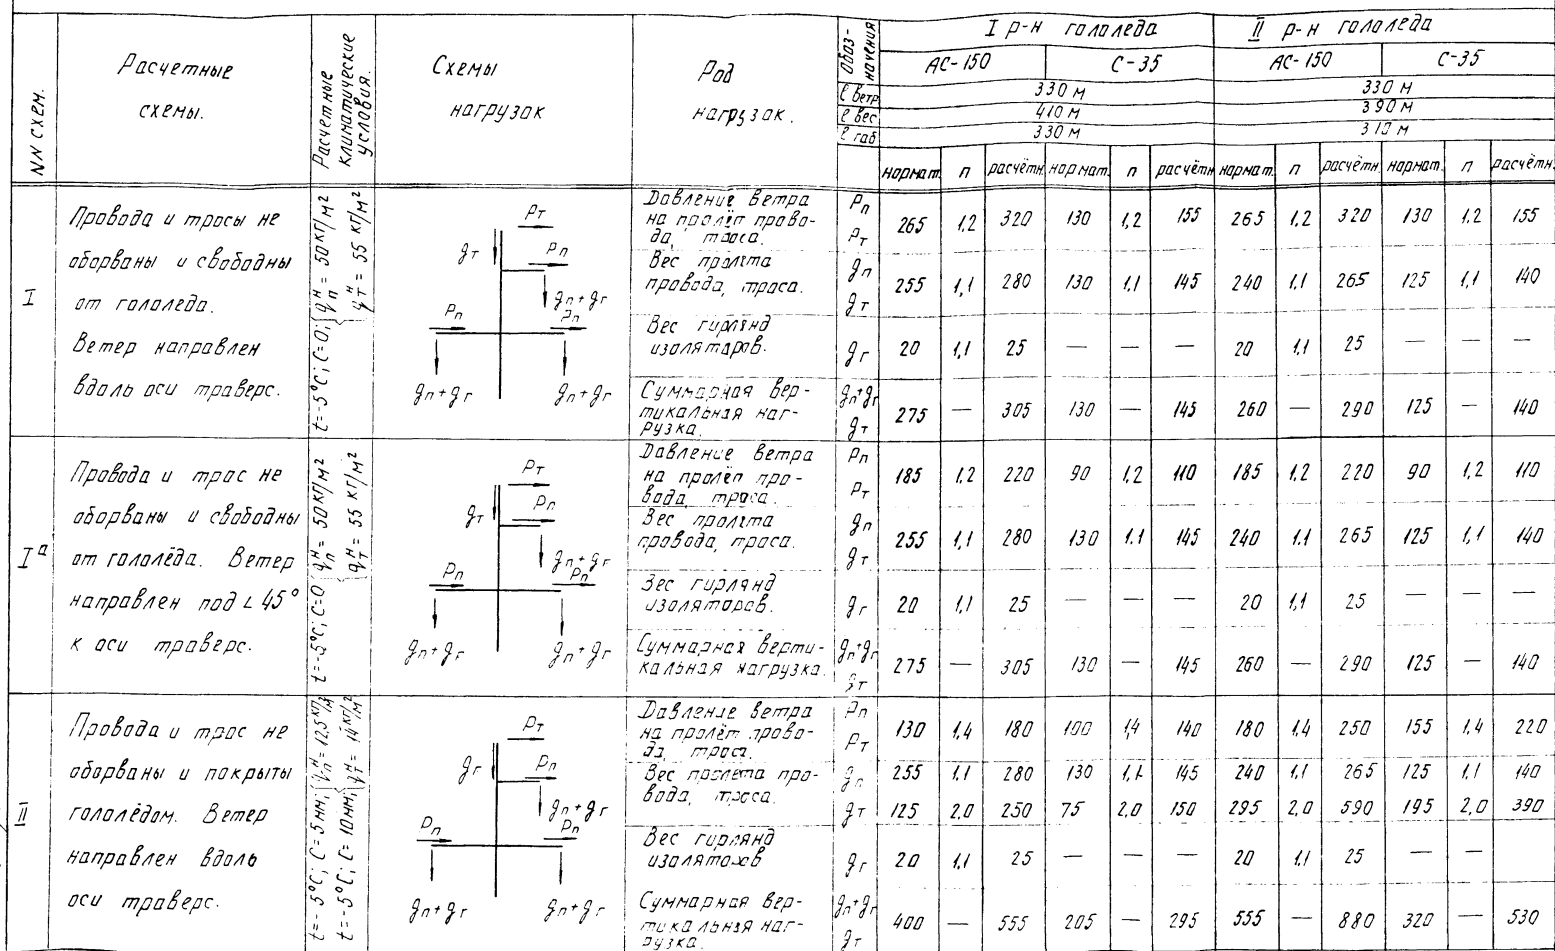 NN схем.
Расчетные
схемы.
Расчетные
климатические
условия.
Схемы
нагрузок
Род
нагрузок.
Обоз-
начения
I р-н гололеда
II р-н гололеда
АС-150 С-35 АС-150 С-35
ℓ ветр 330 м 330 м
ℓ вес 410 м 390 м
ℓ габ 330 м 310 м
нормат. n расчётн. нормат. n расчётн. нормат. n расчётн. нормат. n расчётн.
I
Провода и тросы не
оборваны и свободны
от гололеда.
Ветер направлен
вдоль оси траверс.
t=-5°C; C=0; qнп = 50 кг/м²
qнт = 55 кг/м²
Pт
gт Pп
gп+gг
Pп Pп
gп+gг gп+gг
Давление ветра
на пролёт прово-
да, троса.
Pп
Pт
265 1,2 320 130 1,2 155 265 1,2 320 130 1,2 155
Вес пролета
провода, троса.
gп
gт
255 1,1 280 130 1,1 145 240 1,1 265 125 1,1 140
Вес гирлянд
изоляторов.
gг
20 1,1 25 — — — 20 1,1 25 — — —
Суммарная вер-
тикальная наг-
рузка.
gп+gг
gт
275 — 305 130 — 145 260 — 290 125 — 140
Iа
Провода и трос не
оборваны и свободны
от гололёда. Ветер
направлен под ∠ 45°
к оси траверс.
t=-5°C; C=0 qнп = 50 кг/м²
qнт = 55 кг/м²
Pт
gт Pп
gп+gг
Pп Pп
gп+gг gп+gг
Давление ветра
на пролёт про-
вода, троса.
Pп
Pт
185 1,2 220 90 1,2 110 185 1,2 220 90 1,2 110
Вес пролета
провода, троса.
gп
gт
255 1,1 280 130 1.1 145 240 1.1 265 125 1,1 140
Вес гирлянд
изоляторов.
gг
20 1,1 25 — — — 20 1,1 25 — — —
Суммарная верти-
кальная нагрузка.
gп+gг
gт
275 — 305 130 — 145 260 — 290 125 — 140
II
Провода и трос не
оборваны и покрыты
гололёдом. Ветер
направлен вдоль
оси траверс.
t=-5°C; C=5мм; qнп = 12,5 кг/м²
t=-5°C; C=10мм; qнт = 14 кг/м²
Pт
gг Pп
gп+gг
Pп Pп
gп+gг gп+gг
Давление ветра
на пролёт прово-
да, троса.
Pп
Pт
130 1,4 180 100 1,4 140 180 1,4 250 155 1,4 220
Вес пролета про-
вода, троса.
gп
255 1,1 280 130 1,1 145 240 1,1 265 125 1,1 140
gт
125 2,0 250 75 2,0 150 295 2,0 590 195 2,0 390
Вес гирлянд
изоляторов
gг
20 1,1 25 — — — 20 1,1 25 — —
Суммарная вер-
тикальная наг-
рузка.
gп+gг
gт
400 — 555 205 — 295 555 — 880 320 — 530